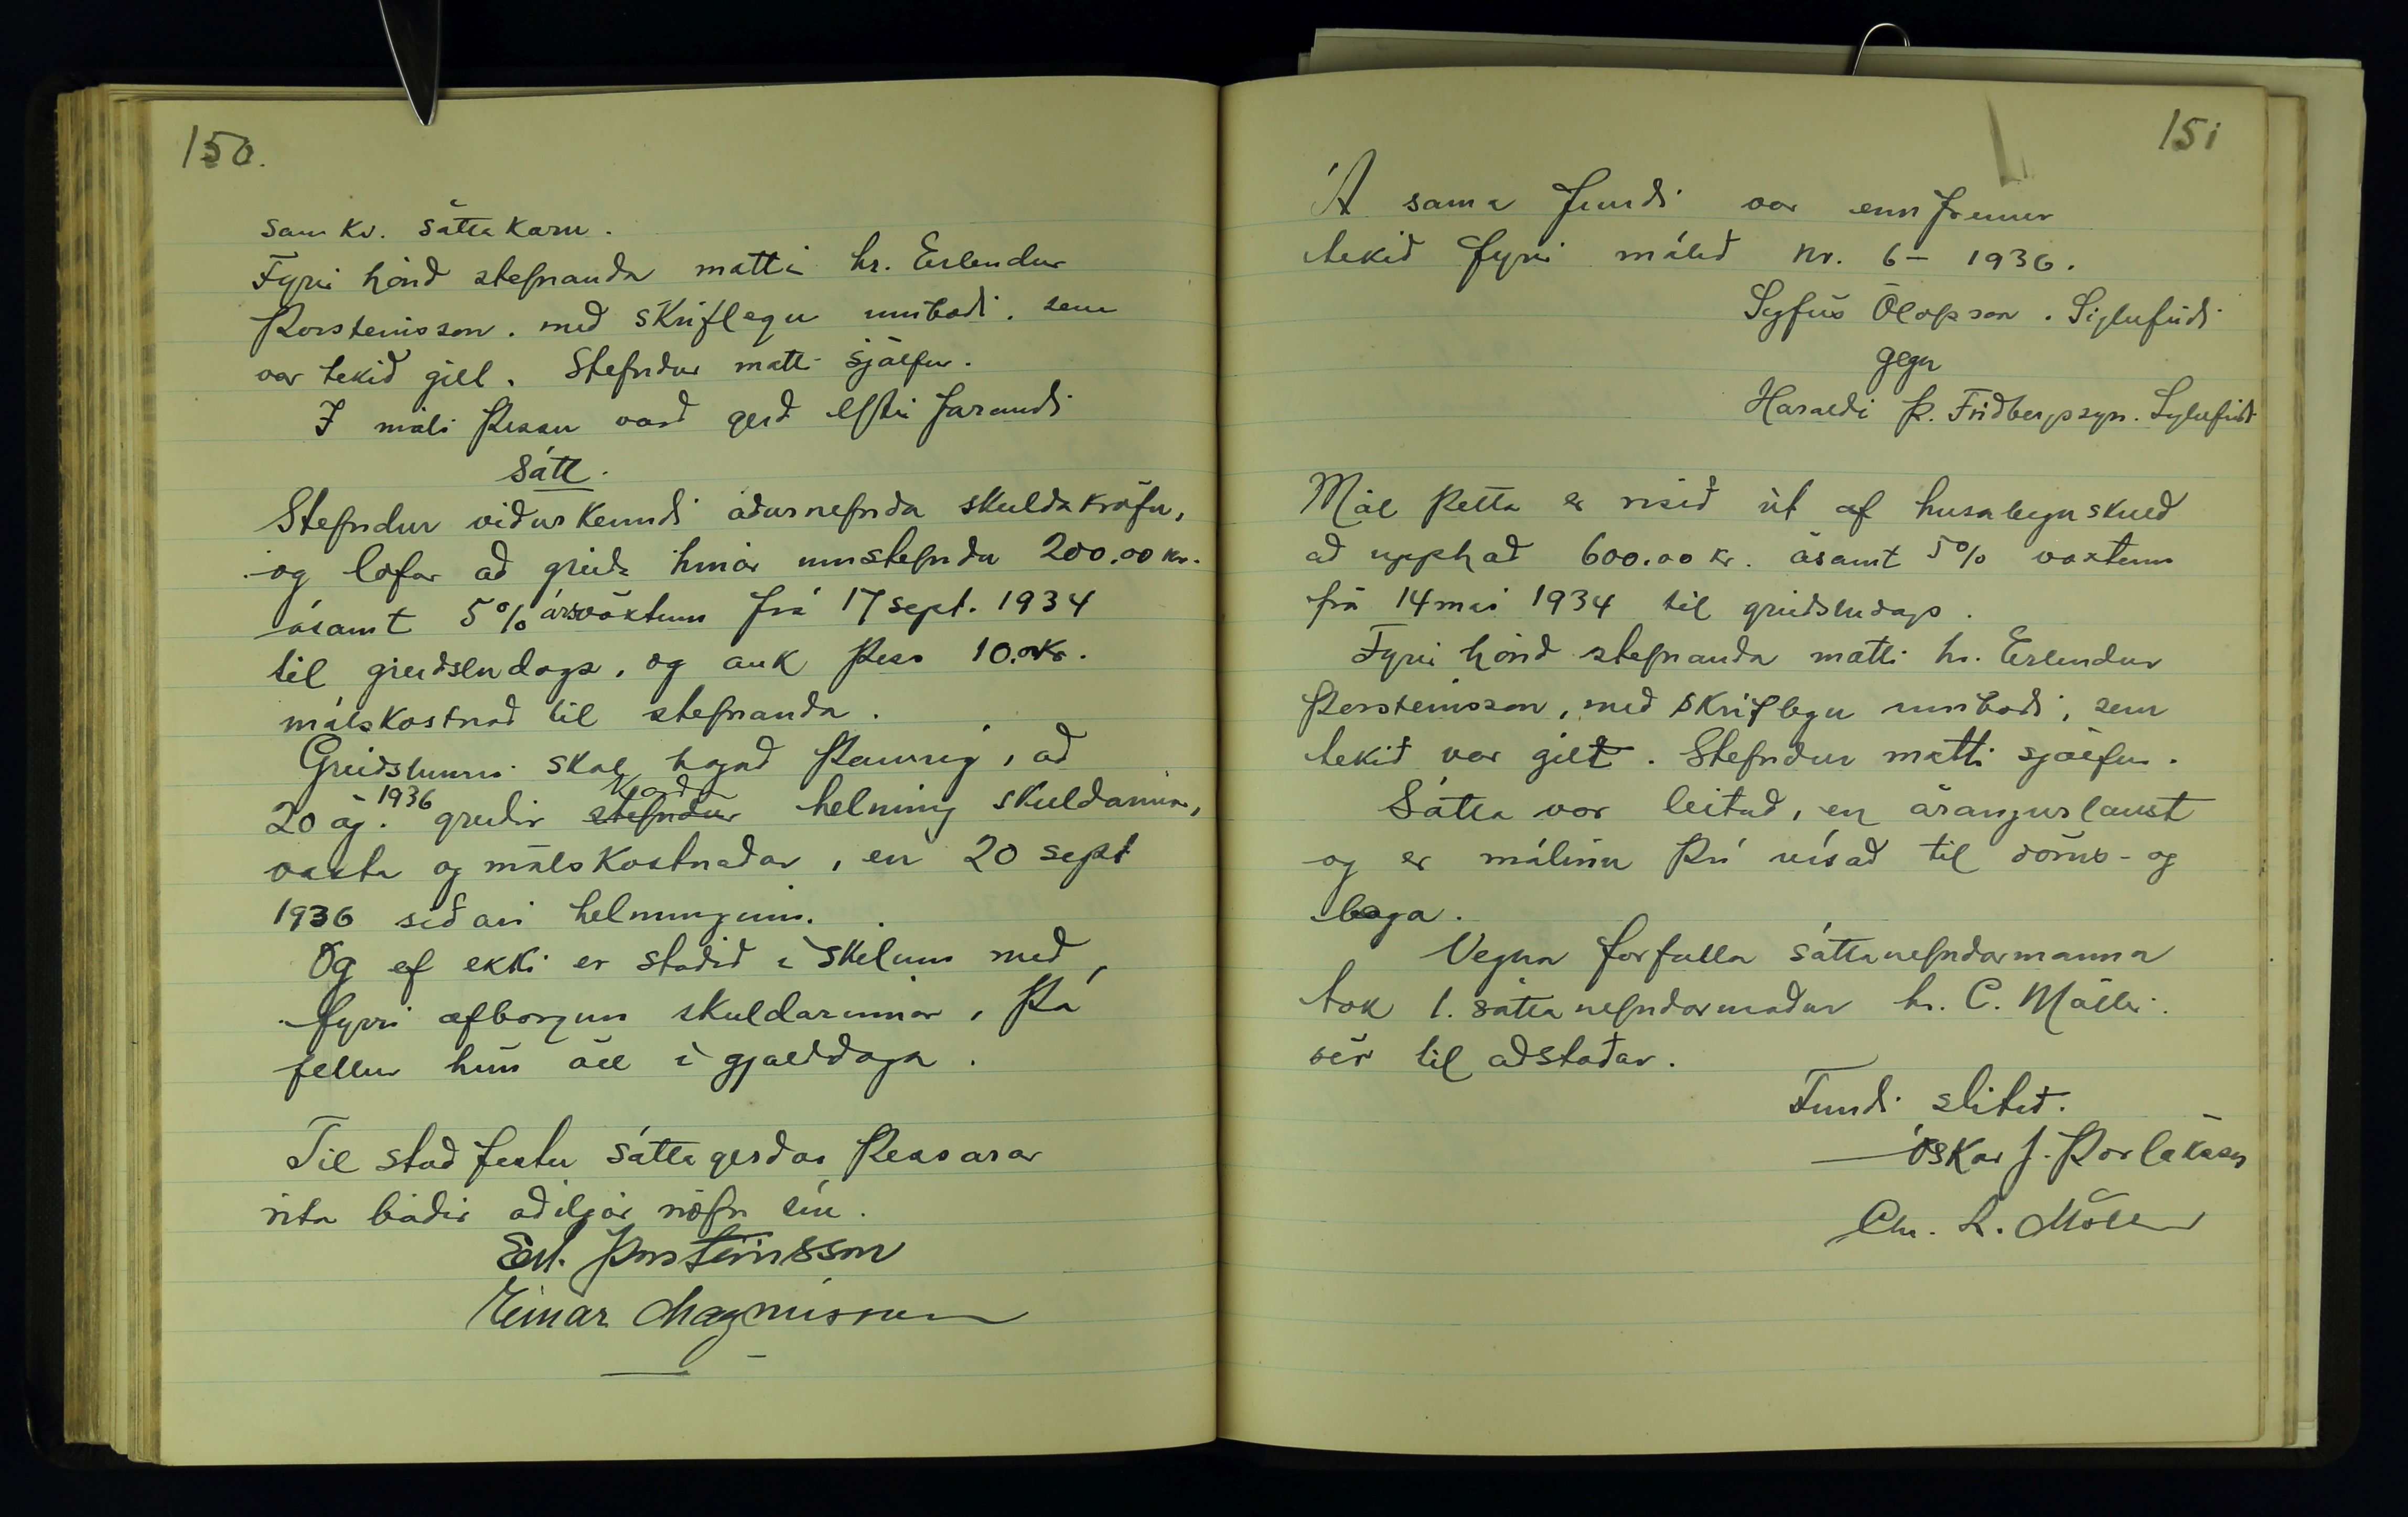 150.
samkv. sáttakæru.
Fyrir hönd stefnanda mætti hr. Erlendur
Þorsteinsson, með skriflegu umboði, sem
var tekið gilt. Stefndur mætti sjálfur.
Í máli þessu varð gerð eftirfarandi
Sátt.
Stefndur viðurkenndi áðurnefnda skuldakröfu,
og lofar að greiða hinar umstefndu 200.00 kr.
ásamt 5% ársvöxtum frá 17 sept. 1934
til greiðsludags, og auk þess 10.00 kr.
málskostnað til stefnanda.
Greiðslunni skal hagað þannig, að
20 ág. 1936 greiðir kærður stefndur helming skuldarinnar,
vaxta og málskostnaðar, en 20 sept
1936 síðari helminginn.
Og ef ekki er staðið í skilum með
fyrri afborgun skuldarinnar, þá
fellur hún öll í gjalddaga.
Til staðfestu sáttagerðar þessarar
rita báðir aðiljar nöfn sín.
Erl. Þorsteinsson
Einar Magnússon
151
Á sama fundi var ennfremur
tekið fyrir málið nr. 6 - 1936.
Sigfús Ólafsson. Siglufirði
gegn
Haraldi Þ. Friðbergssyni. Siglufirði
Mál þetta er risið út af húsaleiguskuld
að upphæð 600.00 kr. ásamt 5% vöxtum
frá 14 maí 1934 til greiðsludags.
Fyrir hönd stefnanda mætti hr. Erlendur
Þorsteinsson, með skriflegu umboði, sem
tekið var gilt. Stefndur mætti sjálfur.
Sátta var leitað, en árangurslaust
og er málinu því vísað til dóms- og
laga.
Vegna forfalla sáttanefndarmanna
tók 1. sáttanefndarmaður hr. C. Möller
sér til aðstoðar.
Fundi slitið.
Óskar J. Þorláksson
Chr. L. Möller